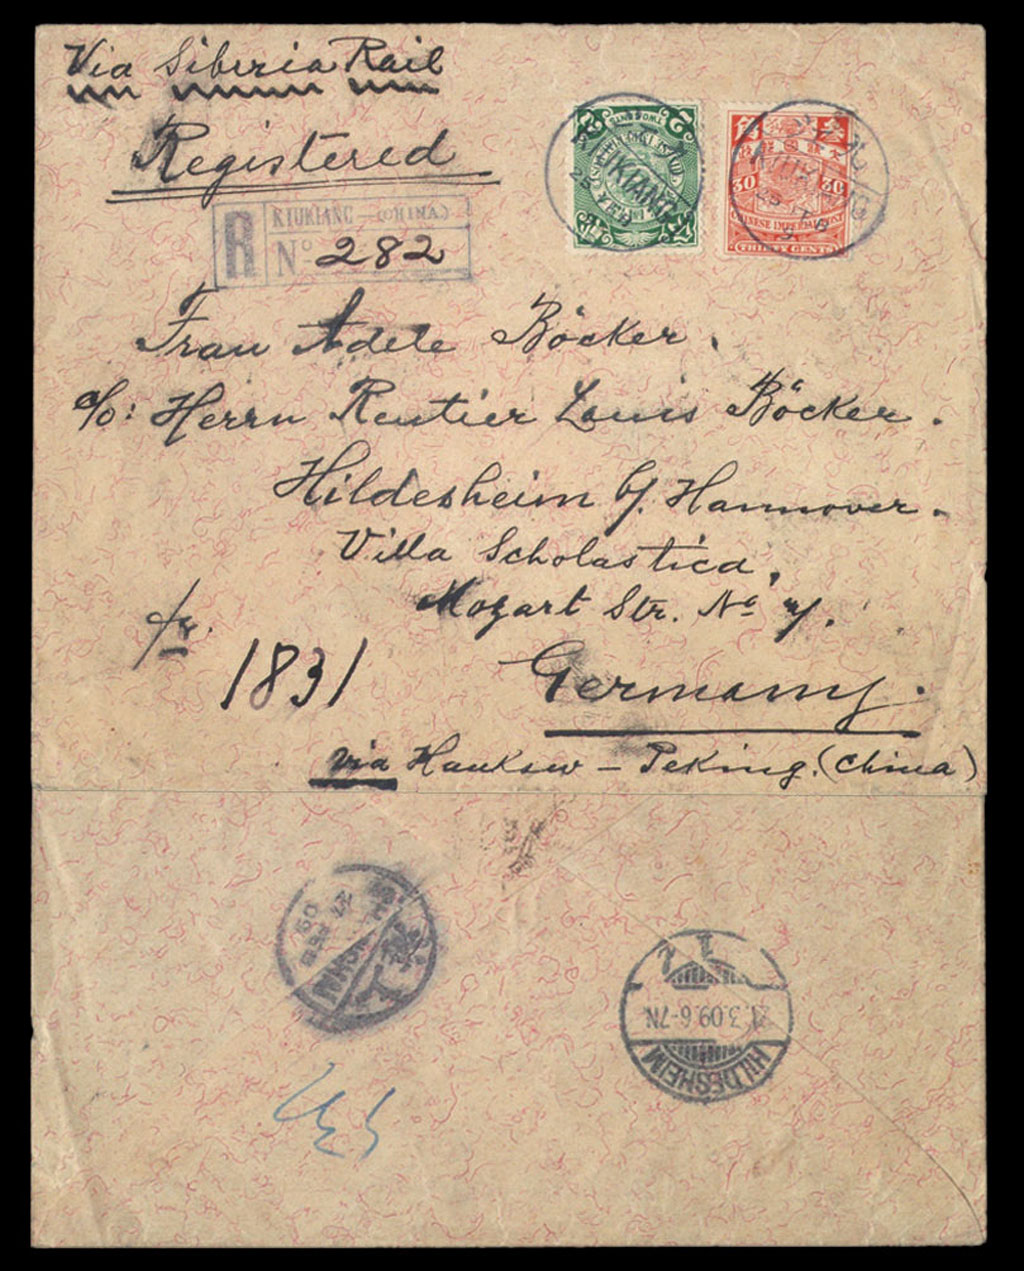 Via Siberia Rail
Registered
R KIUKIANG — (CHINA)
Nº 282
2 TWO CENTS 2
KIUKIANG
30 30
CHINESE IMPERIAL POST
THIRTY CENTS
KIUKIANG
Frau Adele Böcker.
c/o: Herrn Rentier Louis Böcker.
Hildesheim b/. Hannover.
Villa Scholastica.
Mozart Str. Nº
1831
Germany.
via Hankow — Peking. (China)
27 FEB 09
HILDESHEIM
.3.09.6-7N.